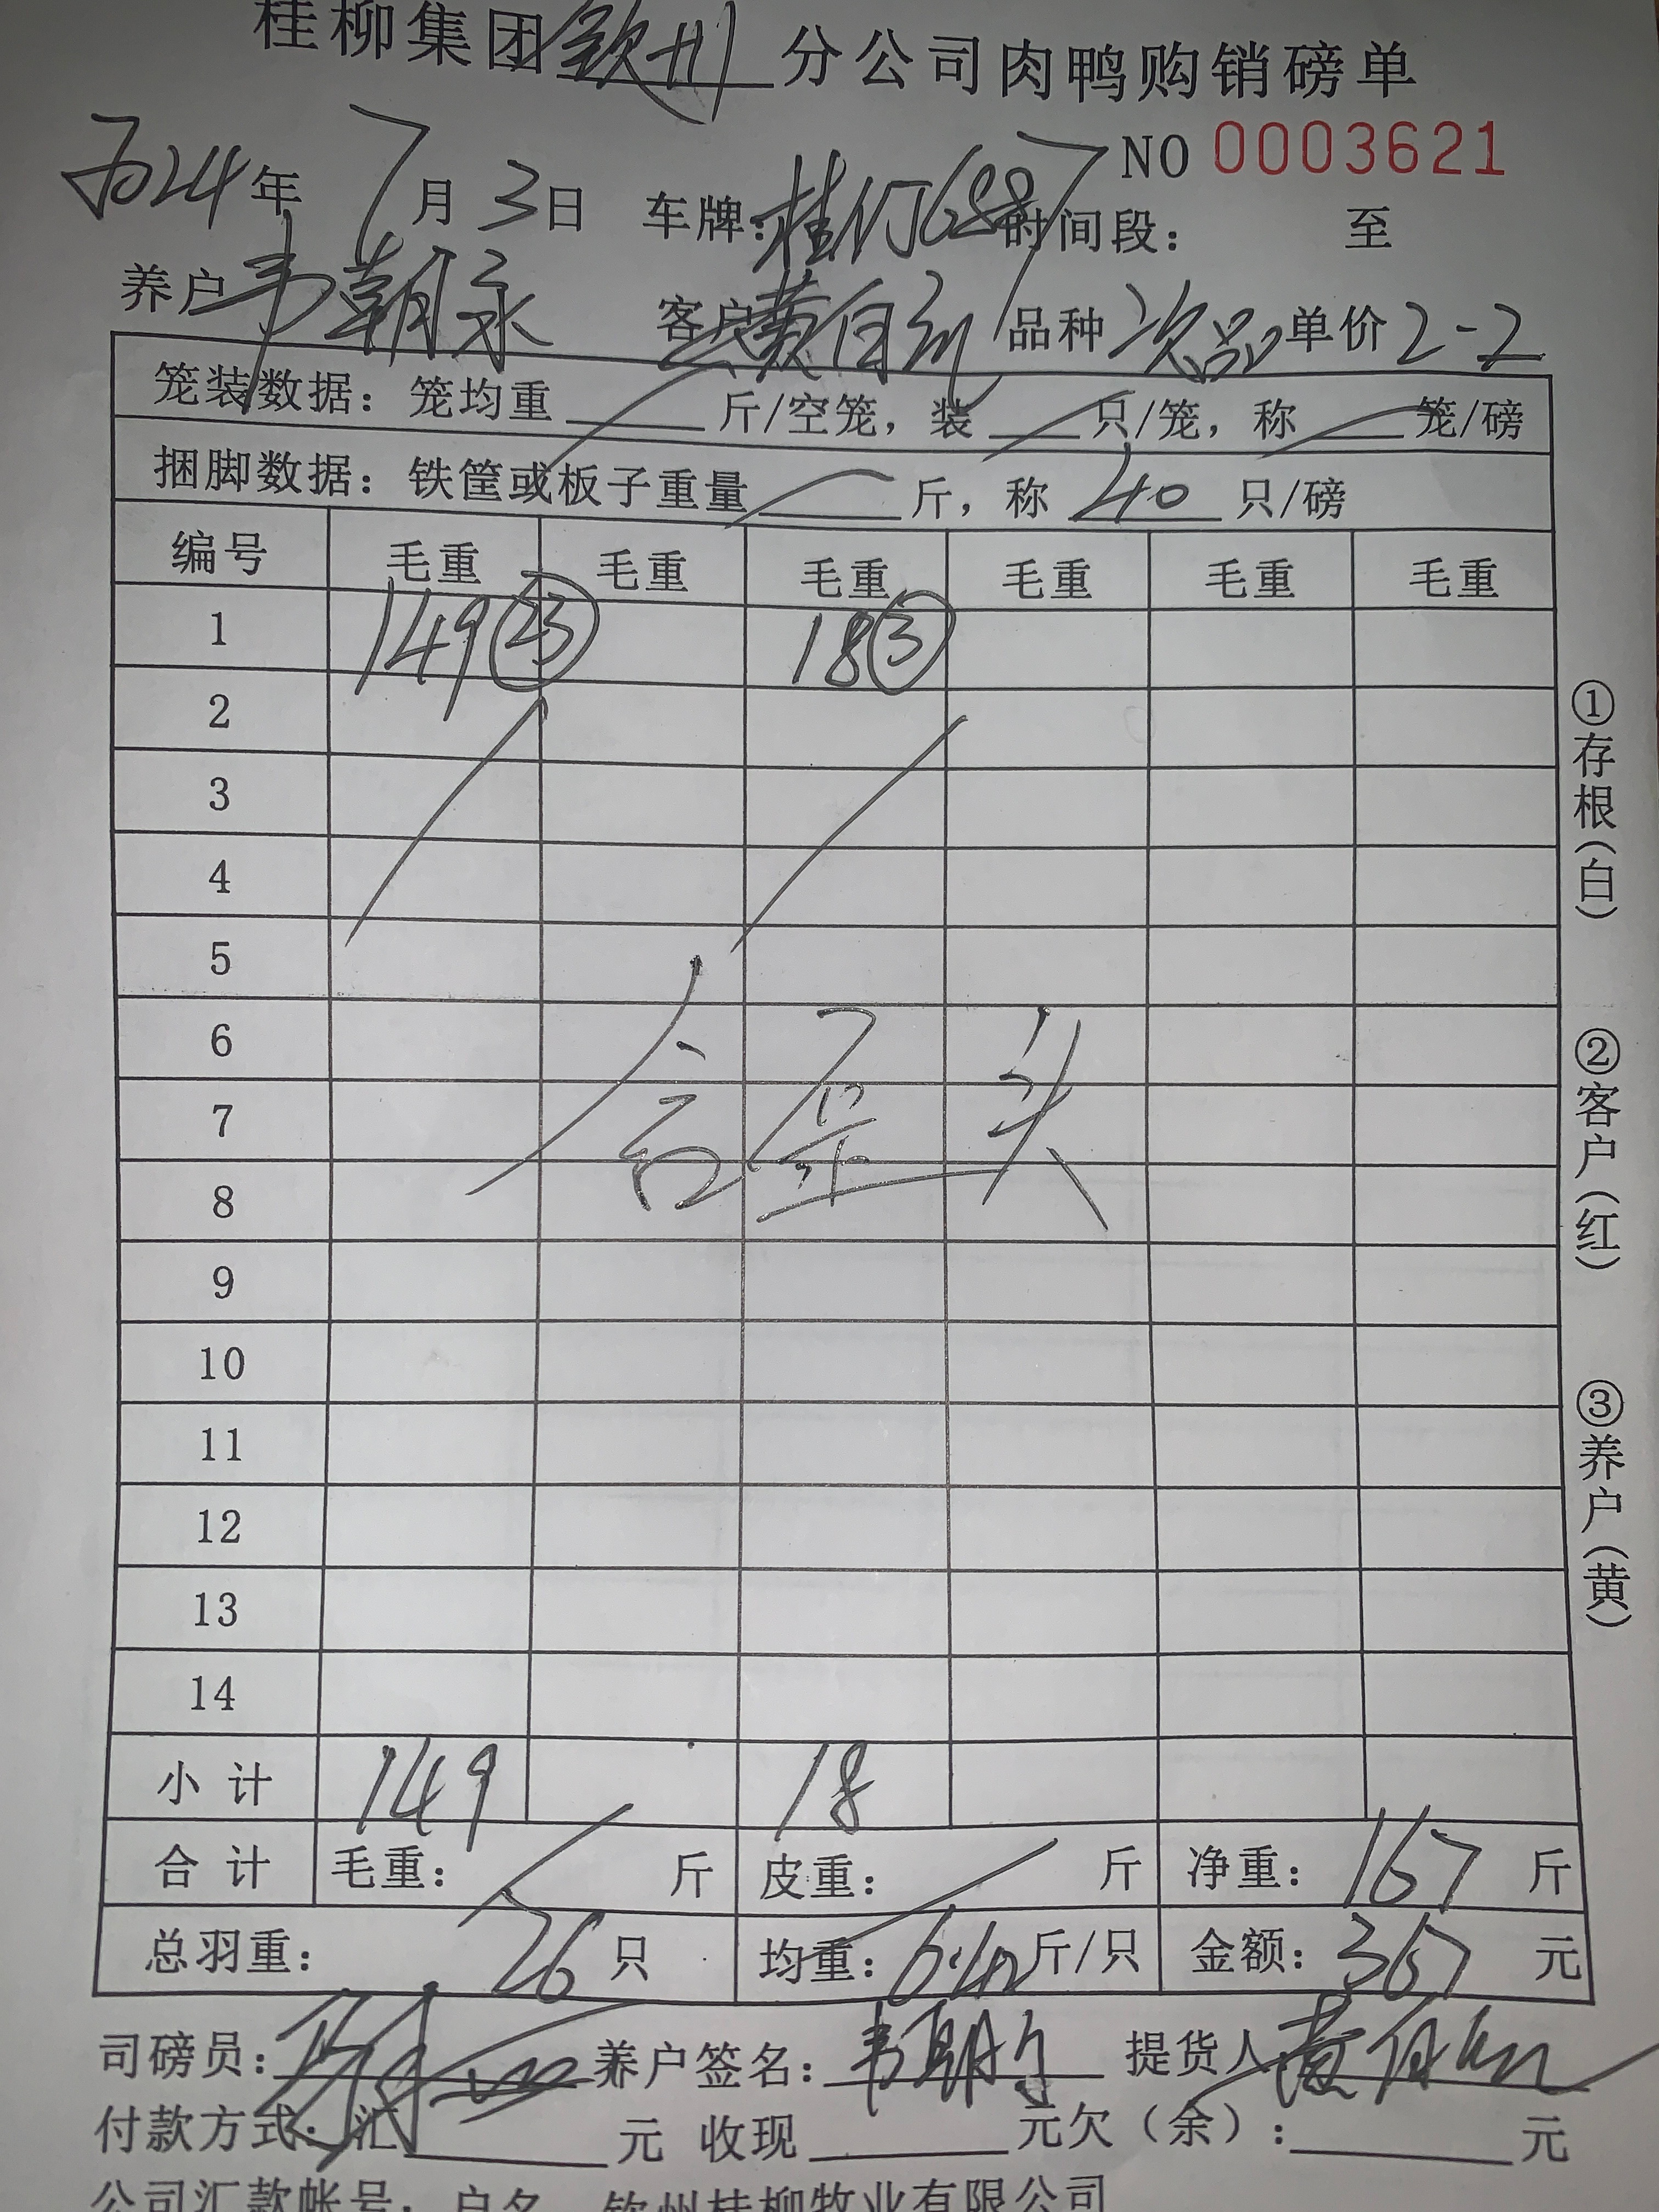 桂柳集团钦州分公司肉鸭购销磅单
NO 0003621
2024年7月3日 车牌: 桂 时间段: 至
养户韦朝永 客户黄自 品种次品 单价2-2
笼装数据: 笼均重 斤/空笼, 装 只/笼, 称 笼/磅
捆脚数据: 铁筐或板子重量 斤, 称 40 只/磅
编号 毛重 毛重 毛重 毛重 毛重 毛重
1 149 23 18 3
2
3
4
5
6
7
8
9
10
11
12
13
14
小计 149 18
合计 毛重: 斤 皮重: 斤 净重: 167 斤
总羽重: 26 只 均重: 6.42 斤/只 金额: 367 元
司磅员: 养户签名: 韦朝永 提货人: 黄
付款方式: 汇 元 收现 元欠(余): 元
公司汇款帐号: 户名 钦州桂柳牧业有限公司
①存根(白)
②客户(红)
③养户(黄)